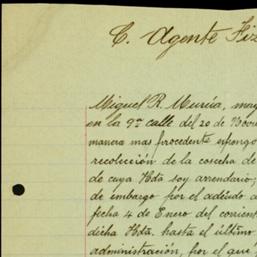 C. Agente Fiz
Miguel R. Murúa, may
en la 9ª calle del 20 de Nov
manera mas procedente espongo
recolección de la concha de
de cuya Hda soy arrendario,
de embargo por el adéudo d
fecha 4 de Enero del corrien
dicha Hda. hasta el último
administración, por el que